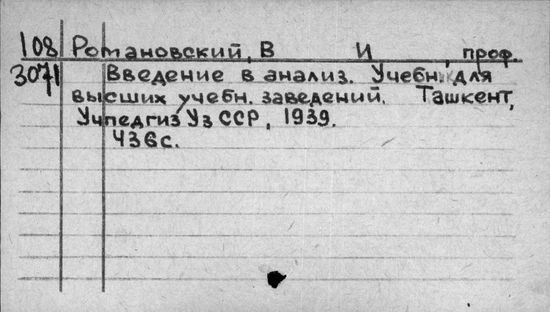 108 Романовский, В И , проф.
3071 Введение в анализ. Учебн. для
высших учебн. заведений. Ташкент,
Учпедгиз УзССР, 1939.
436с.